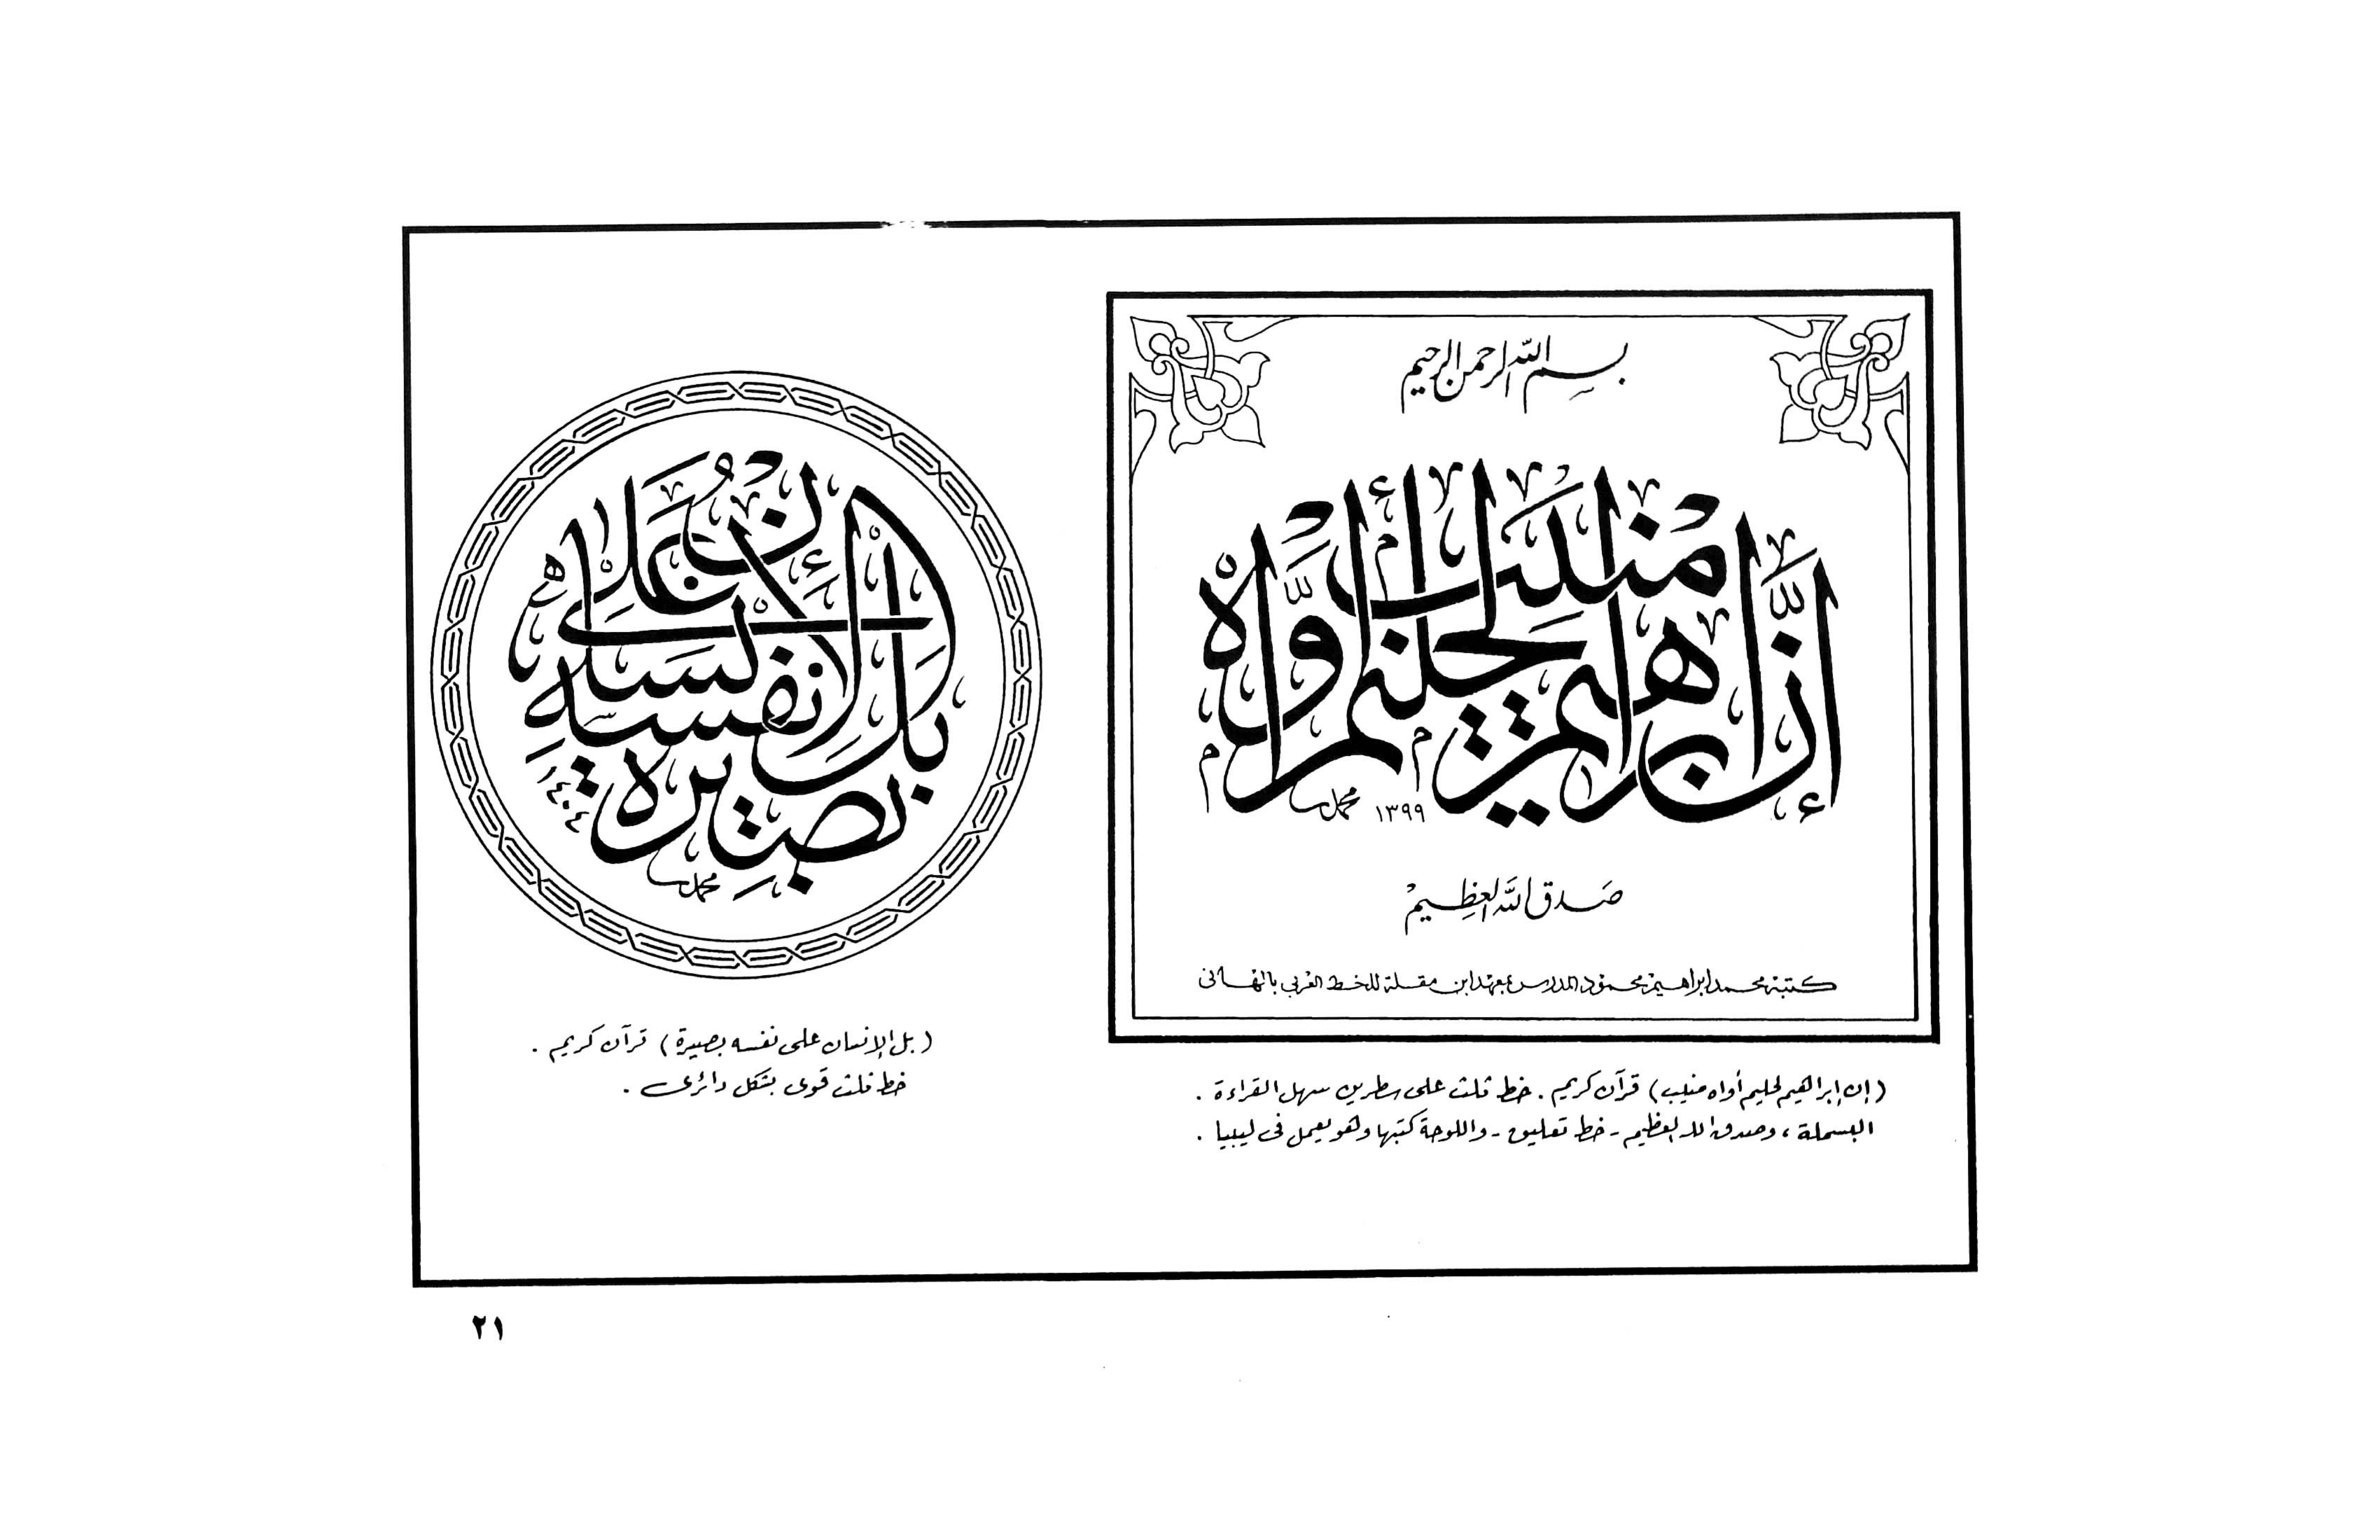 بسم الله الرحمن الرحيم
إن إبراهيم لحليم أواه منيب
محمد ١٣٩٩
صدق الله العظيم
كتبه محمد إبراهيم محمود المدرس بمعهد ابن مقلة للخط العربي
(إن إبراهيم لحليم أواه منيب) قرآن كريم. خط ثلث على سطرين سهل القراءة.
البسملة، وصدق الله العظيم - خط تعليق - واللوحة كتبها وهو يعمل فى ليبيا.
بل الإنسان على نفسه بصيرة
محمد
(بل الإنسان على نفسه بصيرة) قرآن كريم.
خط ثلث قوى بشكل دائرى.
٢١